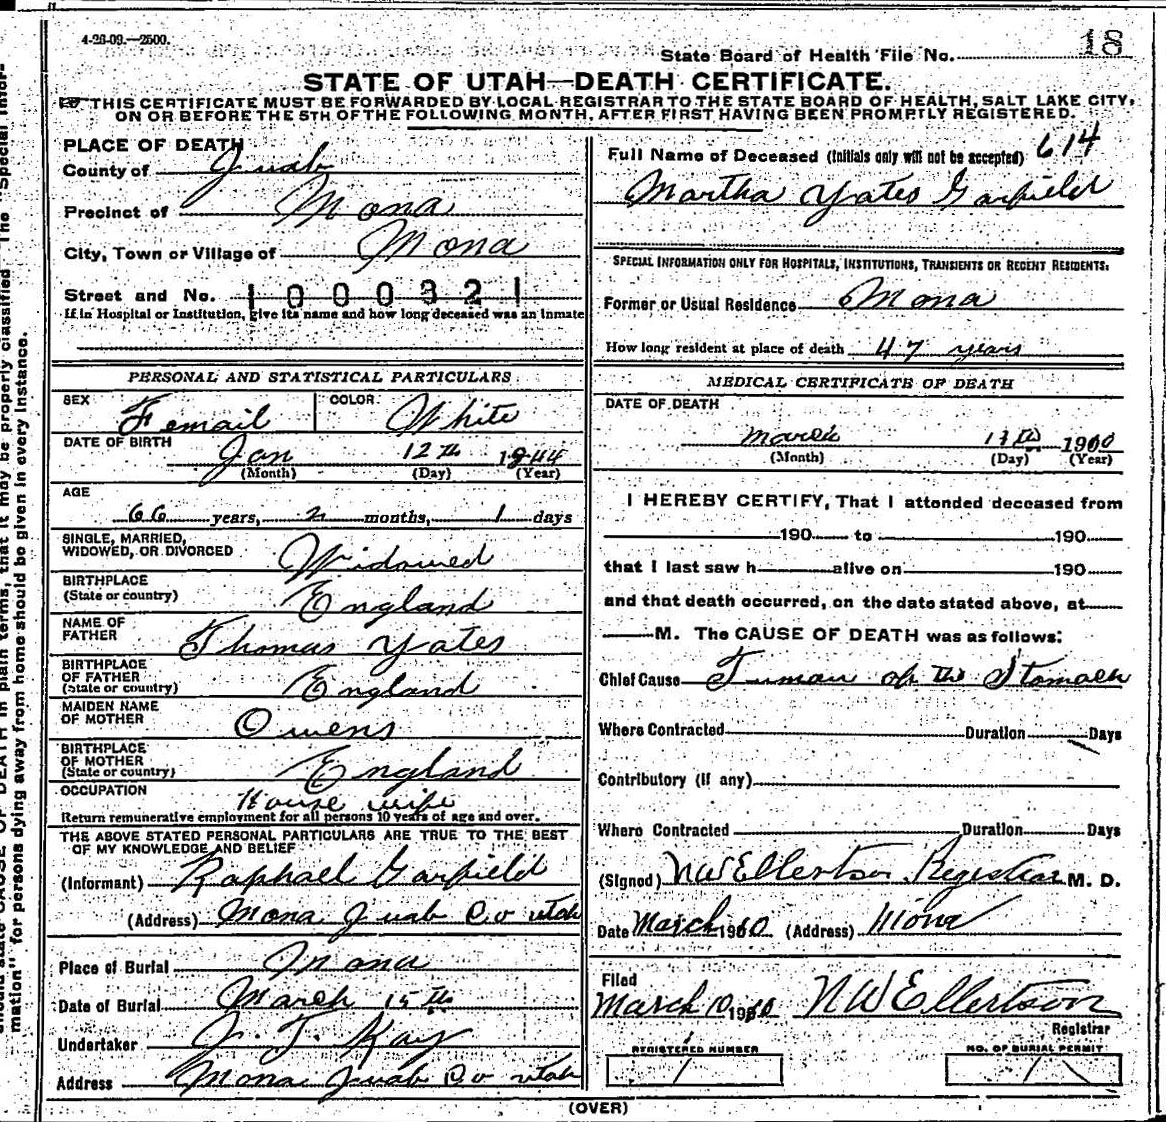 4-26-09.—2500.
State Board of Health File No. 18
STATE OF UTAH—DEATH CERTIFICATE.
THIS CERTIFICATE MUST BE FORWARDED BY LOCAL REGISTRAR TO THE STATE BOARD OF HEALTH, SALT LAKE CITY,
ON OR BEFORE THE 5TH OF THE FOLLOWING MONTH, AFTER FIRST HAVING BEEN PROMPTLY REGISTERED.
PLACE OF DEATH
County of Juab
Precinct of Mona
City, Town or Village of Mona
Street and No. 1000321
If in Hospital or Institution, give its name and how long deceased was an inmate
PERSONAL AND STATISTICAL PARTICULARS
SEX Femail COLOR White
DATE OF BIRTH Jan 12th 1844
(Month) (Day) (Year)
AGE
66 years, 2 months, 1 days
SINGLE, MARRIED,
WIDOWED, OR DIVORCED Widowed
BIRTHPLACE
(State or country) England
NAME OF
FATHER Thomas Yates
BIRTHPLACE
OF FATHER
(State or country) England
MAIDEN NAME
OF MOTHER Owens
BIRTHPLACE
OF MOTHER
(State or country) England
OCCUPATION House wife
Return remunerative employment for all persons 10 years of age and over.
THE ABOVE STATED PERSONAL PARTICULARS ARE TRUE TO THE BEST
OF MY KNOWLEDGE AND BELIEF
(Informant) Raphael Garfield
(Address) Mona Juab Co utah
Place of Burial Mona
Date of Burial March 15th
Undertaker J. T. Kay
Address Mona Juab Co utah
Full Name of Deceased (Initials only will not be accepted) 614
Martha Yates Garfield
SPECIAL INFORMATION ONLY FOR HOSPITALS, INSTITUTIONS, TRANSIENTS OR RECENT RESIDENTS.
Former or Usual Residence Mona
How long resident at place of death 47 years
MEDICAL CERTIFICATE OF DEATH
DATE OF DEATH
March 13th 1910
(Month) (Day) (Year)
I HEREBY CERTIFY, That I attended deceased from
190 to 190
that I last saw h alive on 190
and that death occurred, on the date stated above, at
M. The CAUSE OF DEATH was as follows:
Chief Cause Tuman of the Stomach
Where Contracted Duration Days
Contributory (if any)
Where Contracted Duration Days
(Signed) NW Ellertson Registrar M. D.
Date March 1910 (Address) Mona
Filed
March 1910 NW Ellertson
Registrar
REGISTERED NUMBER
1
NO. OF BURIAL PERMIT
1
(OVER)
mation" for persons dying away from home should be given in every instance.
CAUSE OF DEATH in plain terms, that it may be properly classified. The "Special Infor-